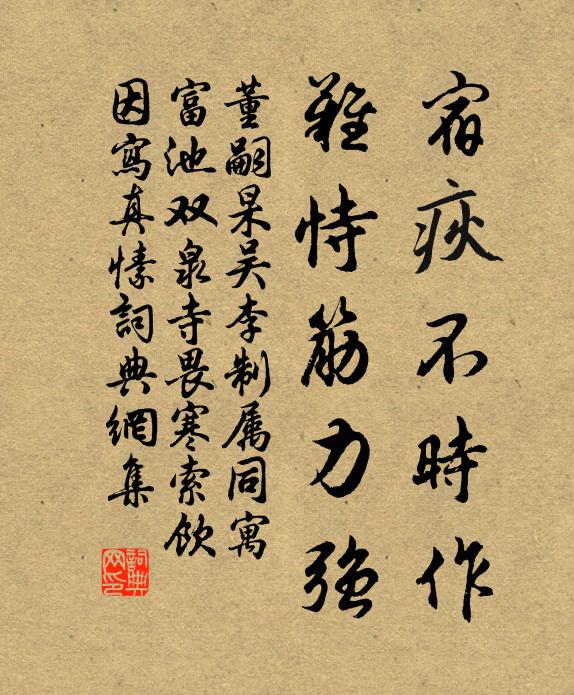 宿疢不時作
難恃筋力强
董嗣杲吴李制属同寓
富池双泉寺畏寒索饮
因寫真愫詞典網集
詞典网印